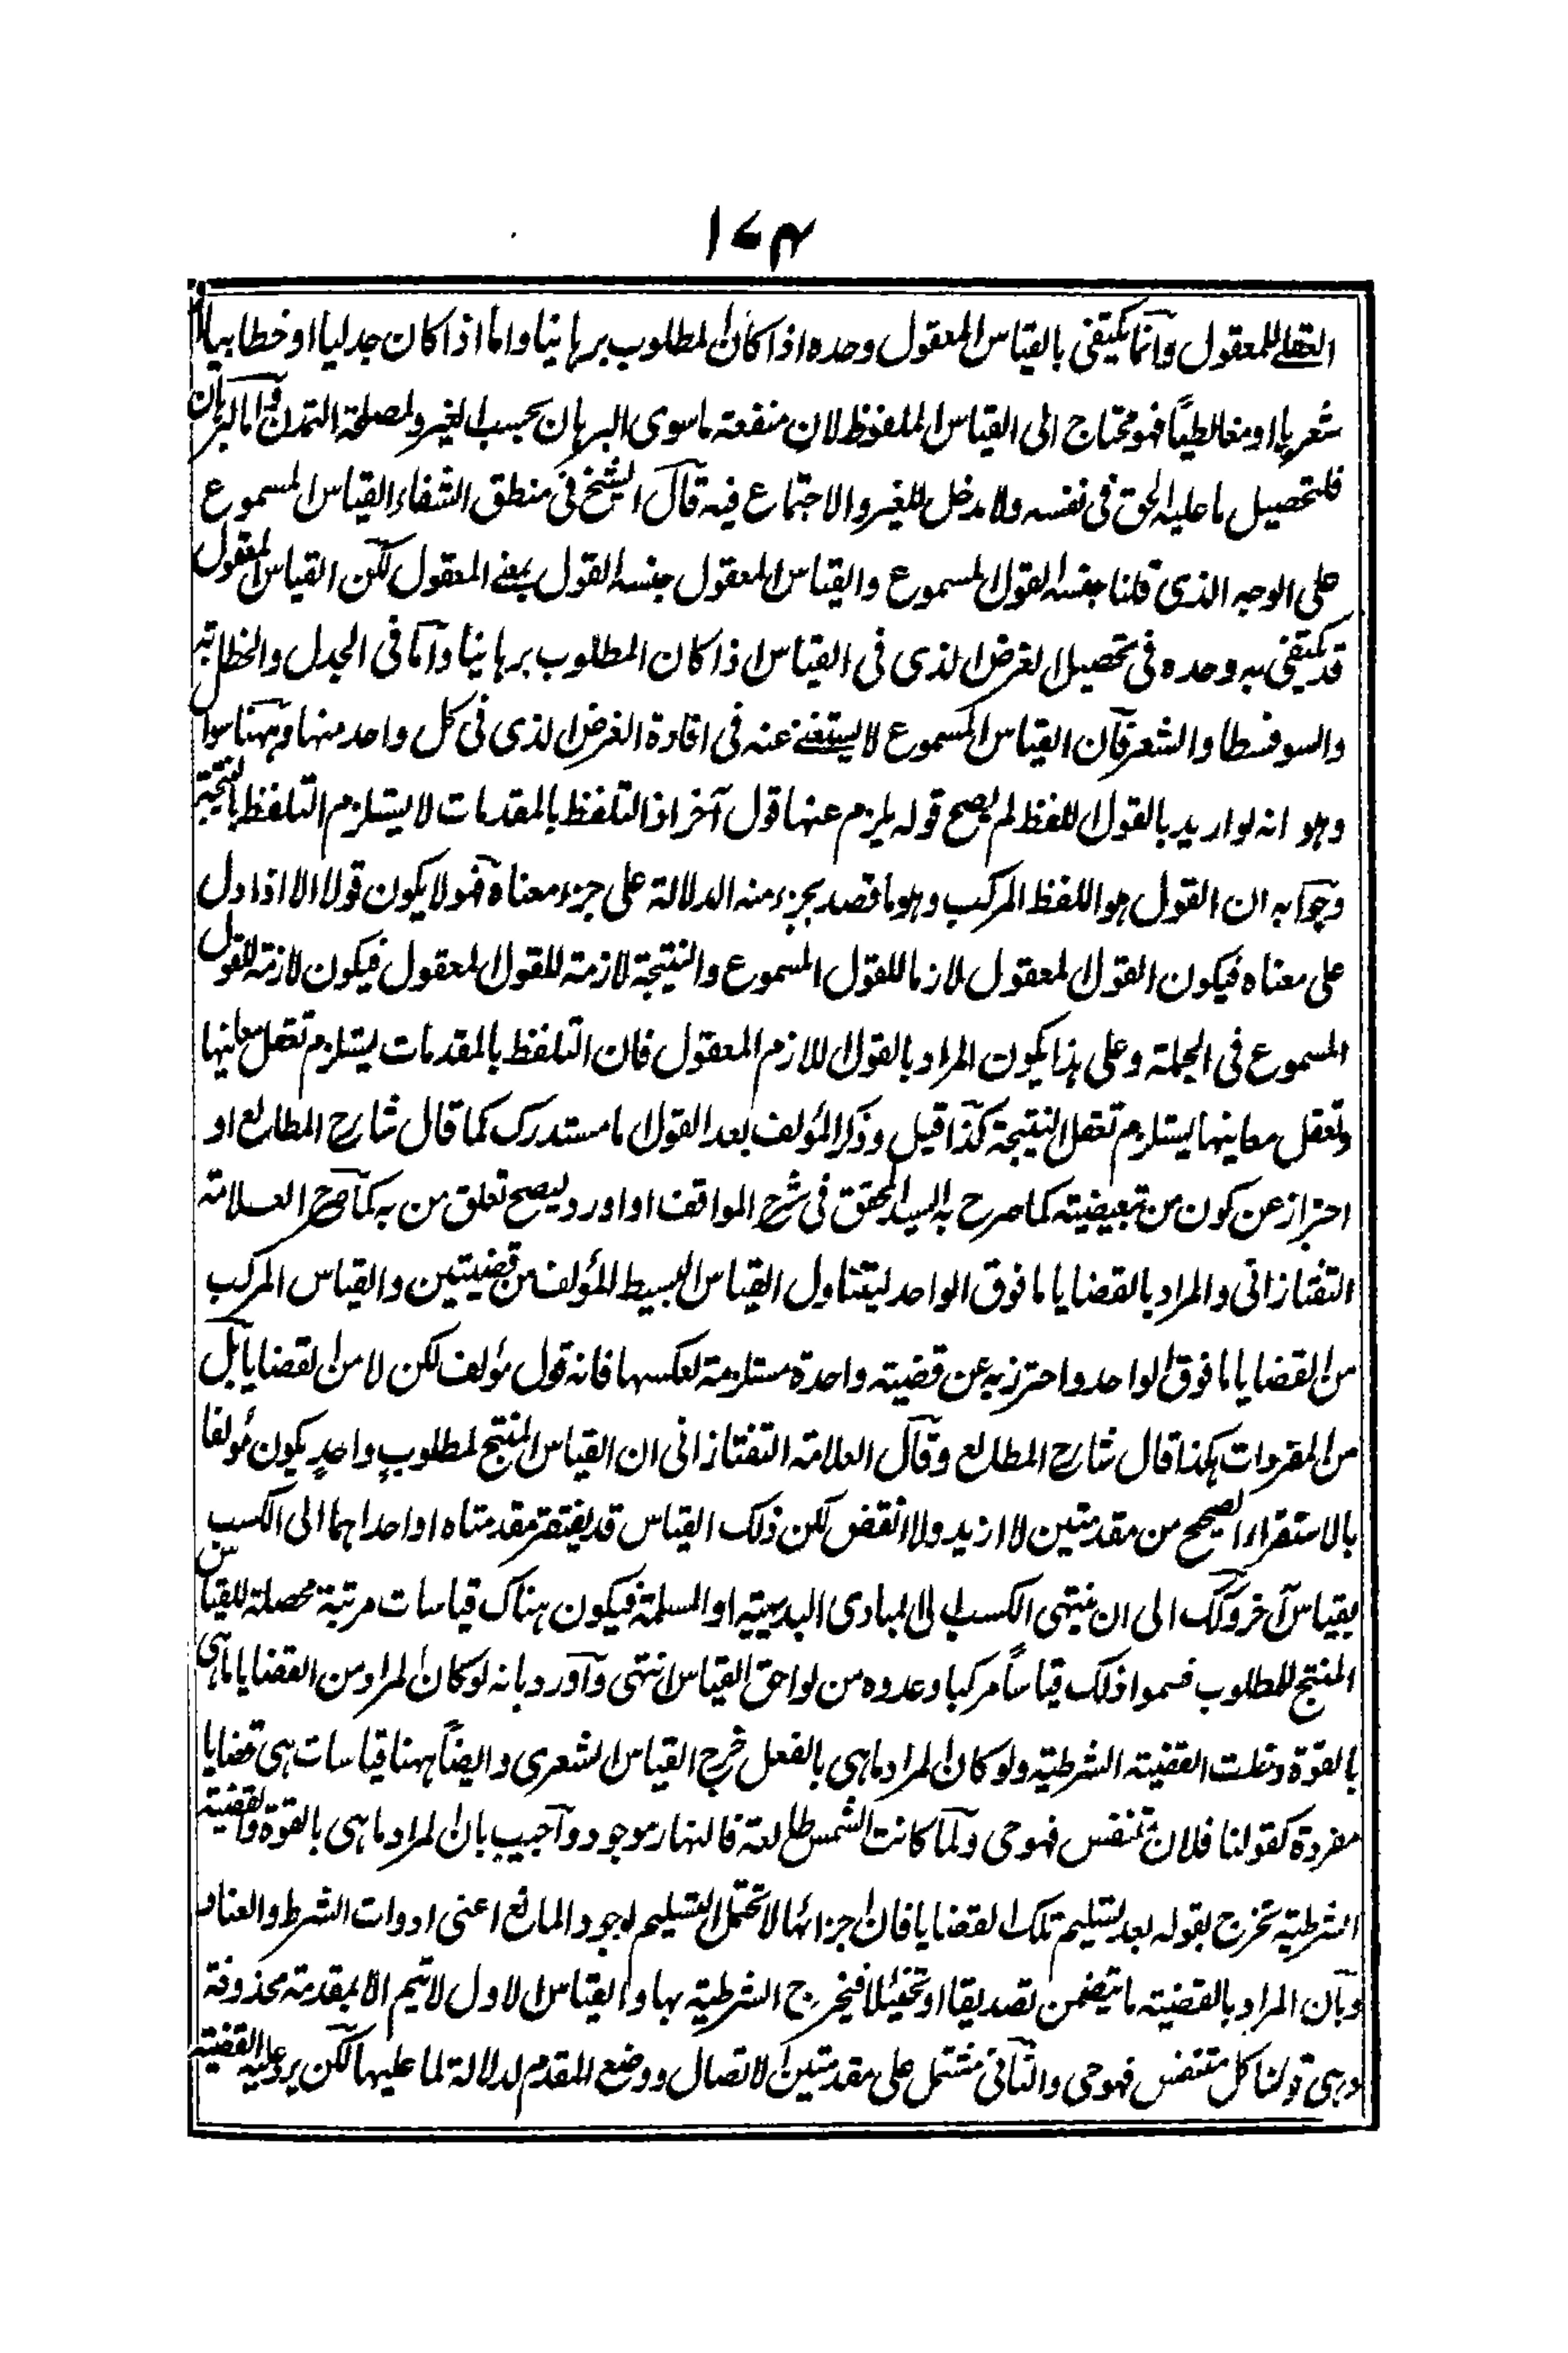 ۱۷۴
العقلے للمعقول وانما یکتفی بالقیاس المعقول وحده اذا کان المطلوب برہانیا واما اذا کان جدلیا او خطابیا او
شعریا او مغالطیاً فهو محتاج الی القیاس الملفوظ لان منفعته ماسوی البرہان بحسب الغیر ولمصلحة التمدن واما البرہان
فلتحصیل ما علیه الحق فی نفسه ولا مدخل للغیر والاجتماع فیه قال الشیخ فی منطق الشفاء القیاس المسموع
علی الوجه الذی قلنا جنسه القول المسموع والقیاس المعقول جنسه القول بمعنے المعقول لکن القیاس المعقول
قد یکتفی به وحده فی تحصیل الغرض الذی فی القیاس اذا کان المطلوب برہانیا واما فی الجدل والخطابة
والسوفسطا والشعر فان القیاس المسموع لا یستغنے عنه فی افادة الغرض الذی فی کل واحد منها وہہنا سوال
وہو انه لو ارید بالقول اللفظ لم یصح قوله یلزم عنها قول آخر اذ التلفظ بالمقدمات لا یستلزم التلفظ بالنتیجة
وجوابه ان القول ہو اللفظ المرکب وہو ما قصد بجزء منه الدلالة علی جزء معناه فهو لا یکون قولا الا اذا دل
علی معناه فیکون القول المعقول لازما للقول المسموع والنتیجة لازمة للقول المعقول فیکون لازمة للقول
المسموع فی الجملة وعلی ہذا یکون المراد بالقول اللازم المعقول فان التلفظ بالمقدمات یستلزم تعقل معانیها
وتعقل معانیها یستلزم تعقل النتیجة کذا قیل وذکر المؤلف بعد القول اما مستدرک کما قال شارح المطالع او
احتراز عن کون من تبعیضیة کما صرح به السید المحقق فی شرح المواقف او اورد لیصح تعلق من به کما صرح العلامة
التفتازانی والمراد بالقضایا ما فوق الواحد لیتناول القیاس البسیط المؤلف من قضیتین والقیاس المرکب
من القضایا ما فوق الواحد واحترز به عن قضیة واحدة مستلزمة لعکسها فانه قول مؤلف لکن لا من القضایا بل
من المفردات ہکذا قال شارح المطالع وقال العلامة التفتازانی ان القیاس المنتج لمطلوبٍ واحدٍ یکون مؤلفا
بالاستقراء الصحیح من مقدمتین لا ازید ولا انقض لکن ذلک القیاس قد یفتقر مقدمتاه او احداہما الی الکسب
بقیاس آخر وکذلک الی ان ینتهی الکسب الی المبادی البدیہیة او المسلمة فیکون ہناک قیاسات مرتبة محصلة للقیاس
المنتج للمطلوب فسموا ذلک قیاساً مرکبا وعدوه من لواحق القیاس انتهی واورد بانه لو کان المراد من القضایا ما ہی
بالقوة دخلت القضیة الشرطیة ولو کان المراد ما ہی بالفعل خرج القیاس الشعری وایضاً ہہنا قیاسات ہی قضایا
مفردة کقولنا فلان یتنفس فهو حی ولما کانت الشمس طالعة فالنهار موجود واجیب بان المراد ما ہی بالقوة والقضیة
الشرطیة تخرج بقوله بعد تسلیم تلک القضایا فان اجزائها لا تحتمل التسلیم لوجود المانع اعنی ادوات الشرط والعناد
وبان المراد بالقضیة ما یتضمن تصدیقا او تخییلا فیخرج الشرطیة بها والقیاس الاول لا یتم الا بمقدمة محذوفة
وہی قولنا کل متنفس فهو حی والثانی مشتمل علی مقدمتین الاتصال ووضع المقدم لدلالة لما علیها لکن یرد علیه القضیة